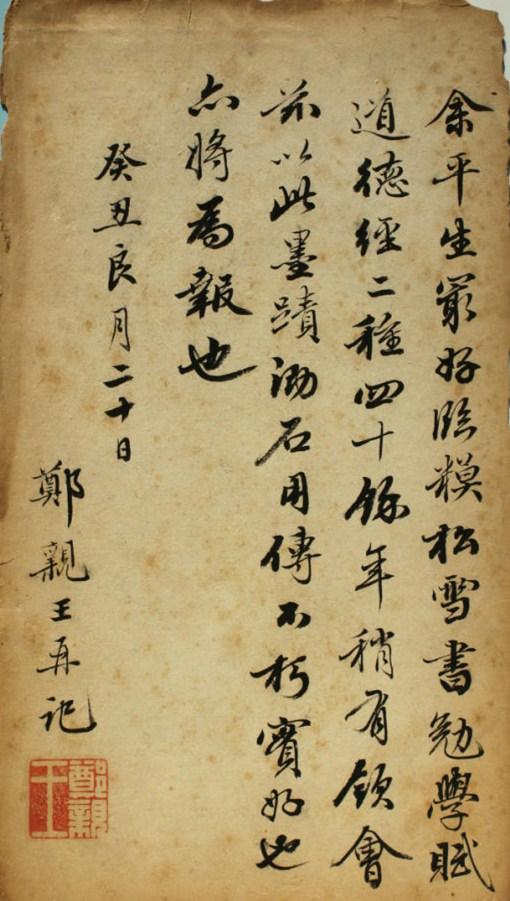 余平生最好臨模松雪書勉學賦
道德經二種四十餘年稍有領會
茲以此墨蹟泐石用傳不朽實好也
亦將為報也
癸丑良月二十日
鄭親王再記
鄭親王